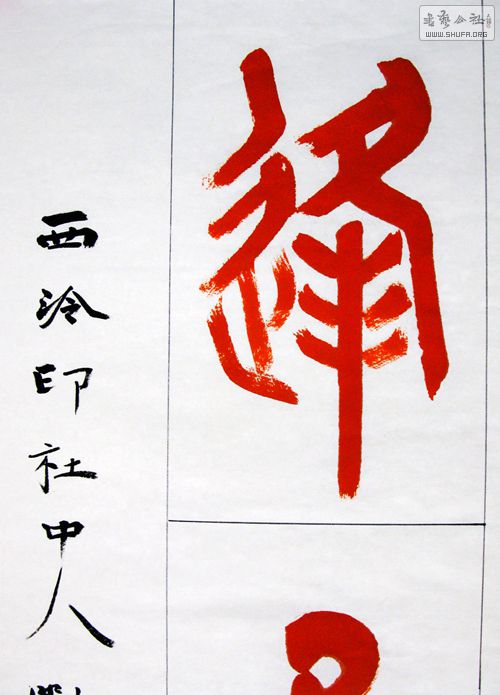 書藝公社
WWW.SHUFA.ORG
逢
西泠印社中人